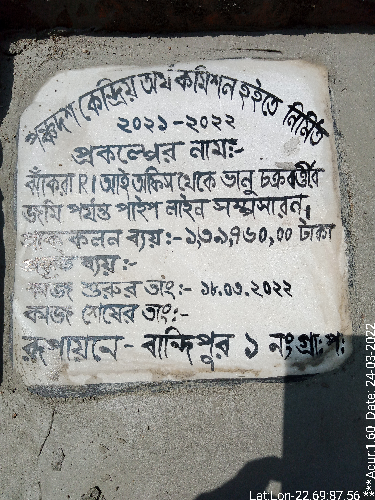 পঞ্চদশ কেন্দ্রিয় অর্থ কমিশন হইতে নির্মিত
২০২১-২০২২
প্রকল্পের নাম:-
ঝাঁকরা R। আই অফিস থেকে ভানু চক্রবর্ত্তীর
জমি পর্যন্ত পাইপ লাইন সম্প্রসারন,
কলন ব্যয়:-১,৩৯,৭৬০,০০ টাকা
ব্যয়:-
কাজ শুরুর তাং:- ১৮.০৩.২০২২
কাজ শেষের তাং:-
রূপায়নে- বান্দিপুর ১ নং গ্রা: প:
Lat:Lon-22.69:87.56
***Acur:1.60 Date: 24-03-2022